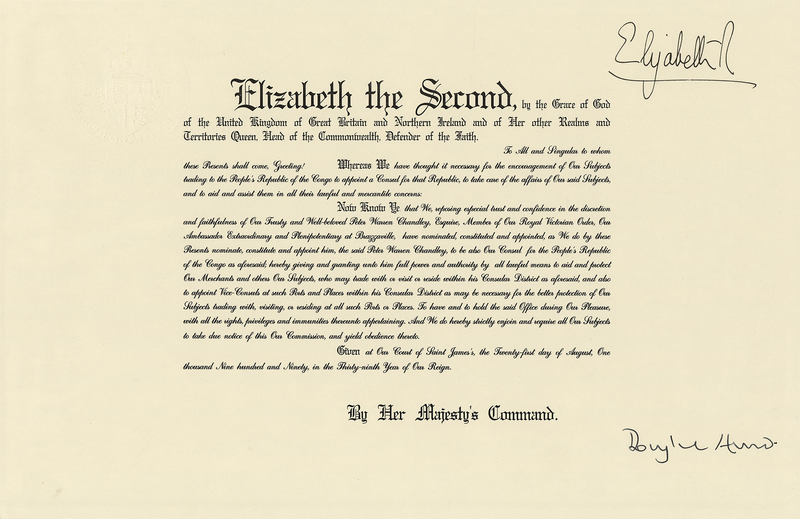 Elizabeth R
Elizabeth the Second, by the Grace of God
of the United Kingdom of Great Britain and Northern Ireland and of Her other Realms and
Territories Queen, Head of the Commonwealth, Defender of the Faith.
To All and Singular to whom
these Presents shall come, Greeting! Whereas We have thought it necessary for the encouragement of Our Subjects
trading to the People's Republic of the Congo to appoint a Consul for that Republic, to take care of the affairs of Our said Subjects,
and to aid and assist them in all their lawful and mercantile concerns:
Now Know Ye that We, reposing especial trust and confidence in the discretion
and faithfulness of Our Trusty and Well-beloved Peter Warren Chandley, Esquire, Member of Our Royal Victorian Order, Our
Ambassador Extraordinary and Plenipotentiary at Brazzaville, have nominated, constituted and appointed, as We do by these
Presents nominate, constitute and appoint him, the said Peter Warren Chandley, to be also Our Consul for the People's Republic
of the Congo as aforesaid; hereby giving and granting unto him full power and authority by all lawful means to aid and protect
Our Merchants and others Our Subjects, who may trade with or visit or reside within his Consular District as aforesaid, and also
to appoint Vice-Consuls at such Ports and Places within his Consular District as may be necessary for the better protection of Our
Subjects trading with, visiting, or residing at all such Ports or Places. To have and to hold the said Office during Our Pleasure,
with all the rights, privileges and immunities thereunto appertaining. And We do hereby strictly enjoin and require all Our Subjects
to take due notice of this Our Commission, and yield obedience thereto.
Given at Our Court of Saint James's, the Twenty-first day of August, One
thousand Nine hundred and Ninety, in the Thirty-ninth Year of Our Reign.
By Her Majesty's Command.
Douglas Hurd.